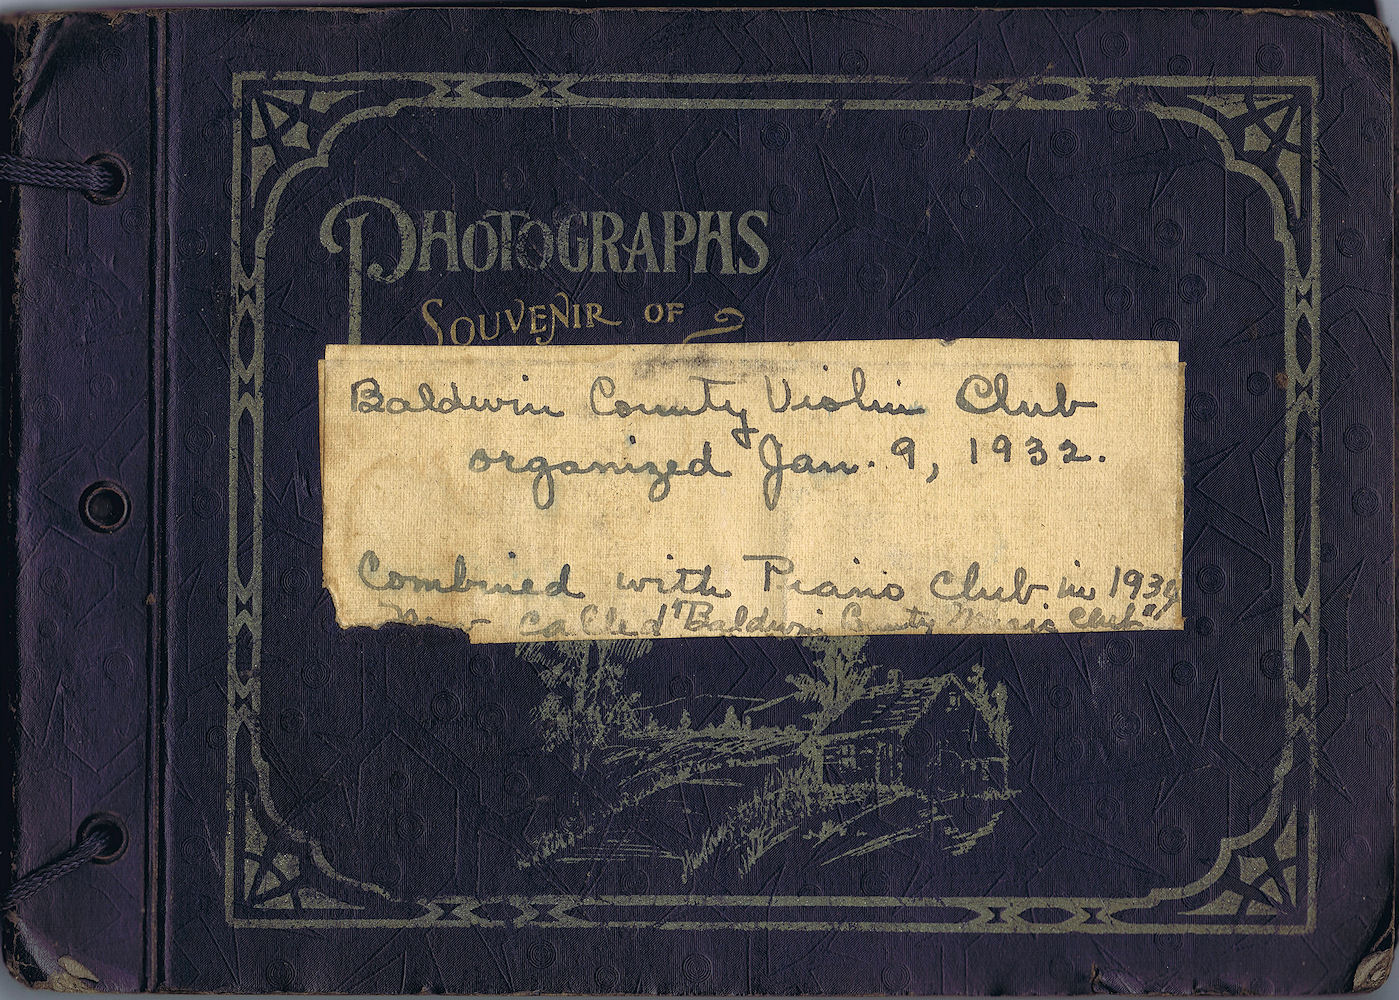 PHOTOGRAPHS
SOUVENIR OF
Baldwin County Violin Club
organized Jan. 9, 1932.
Combined with Piano Club in
called "Baldwin County Music Club"